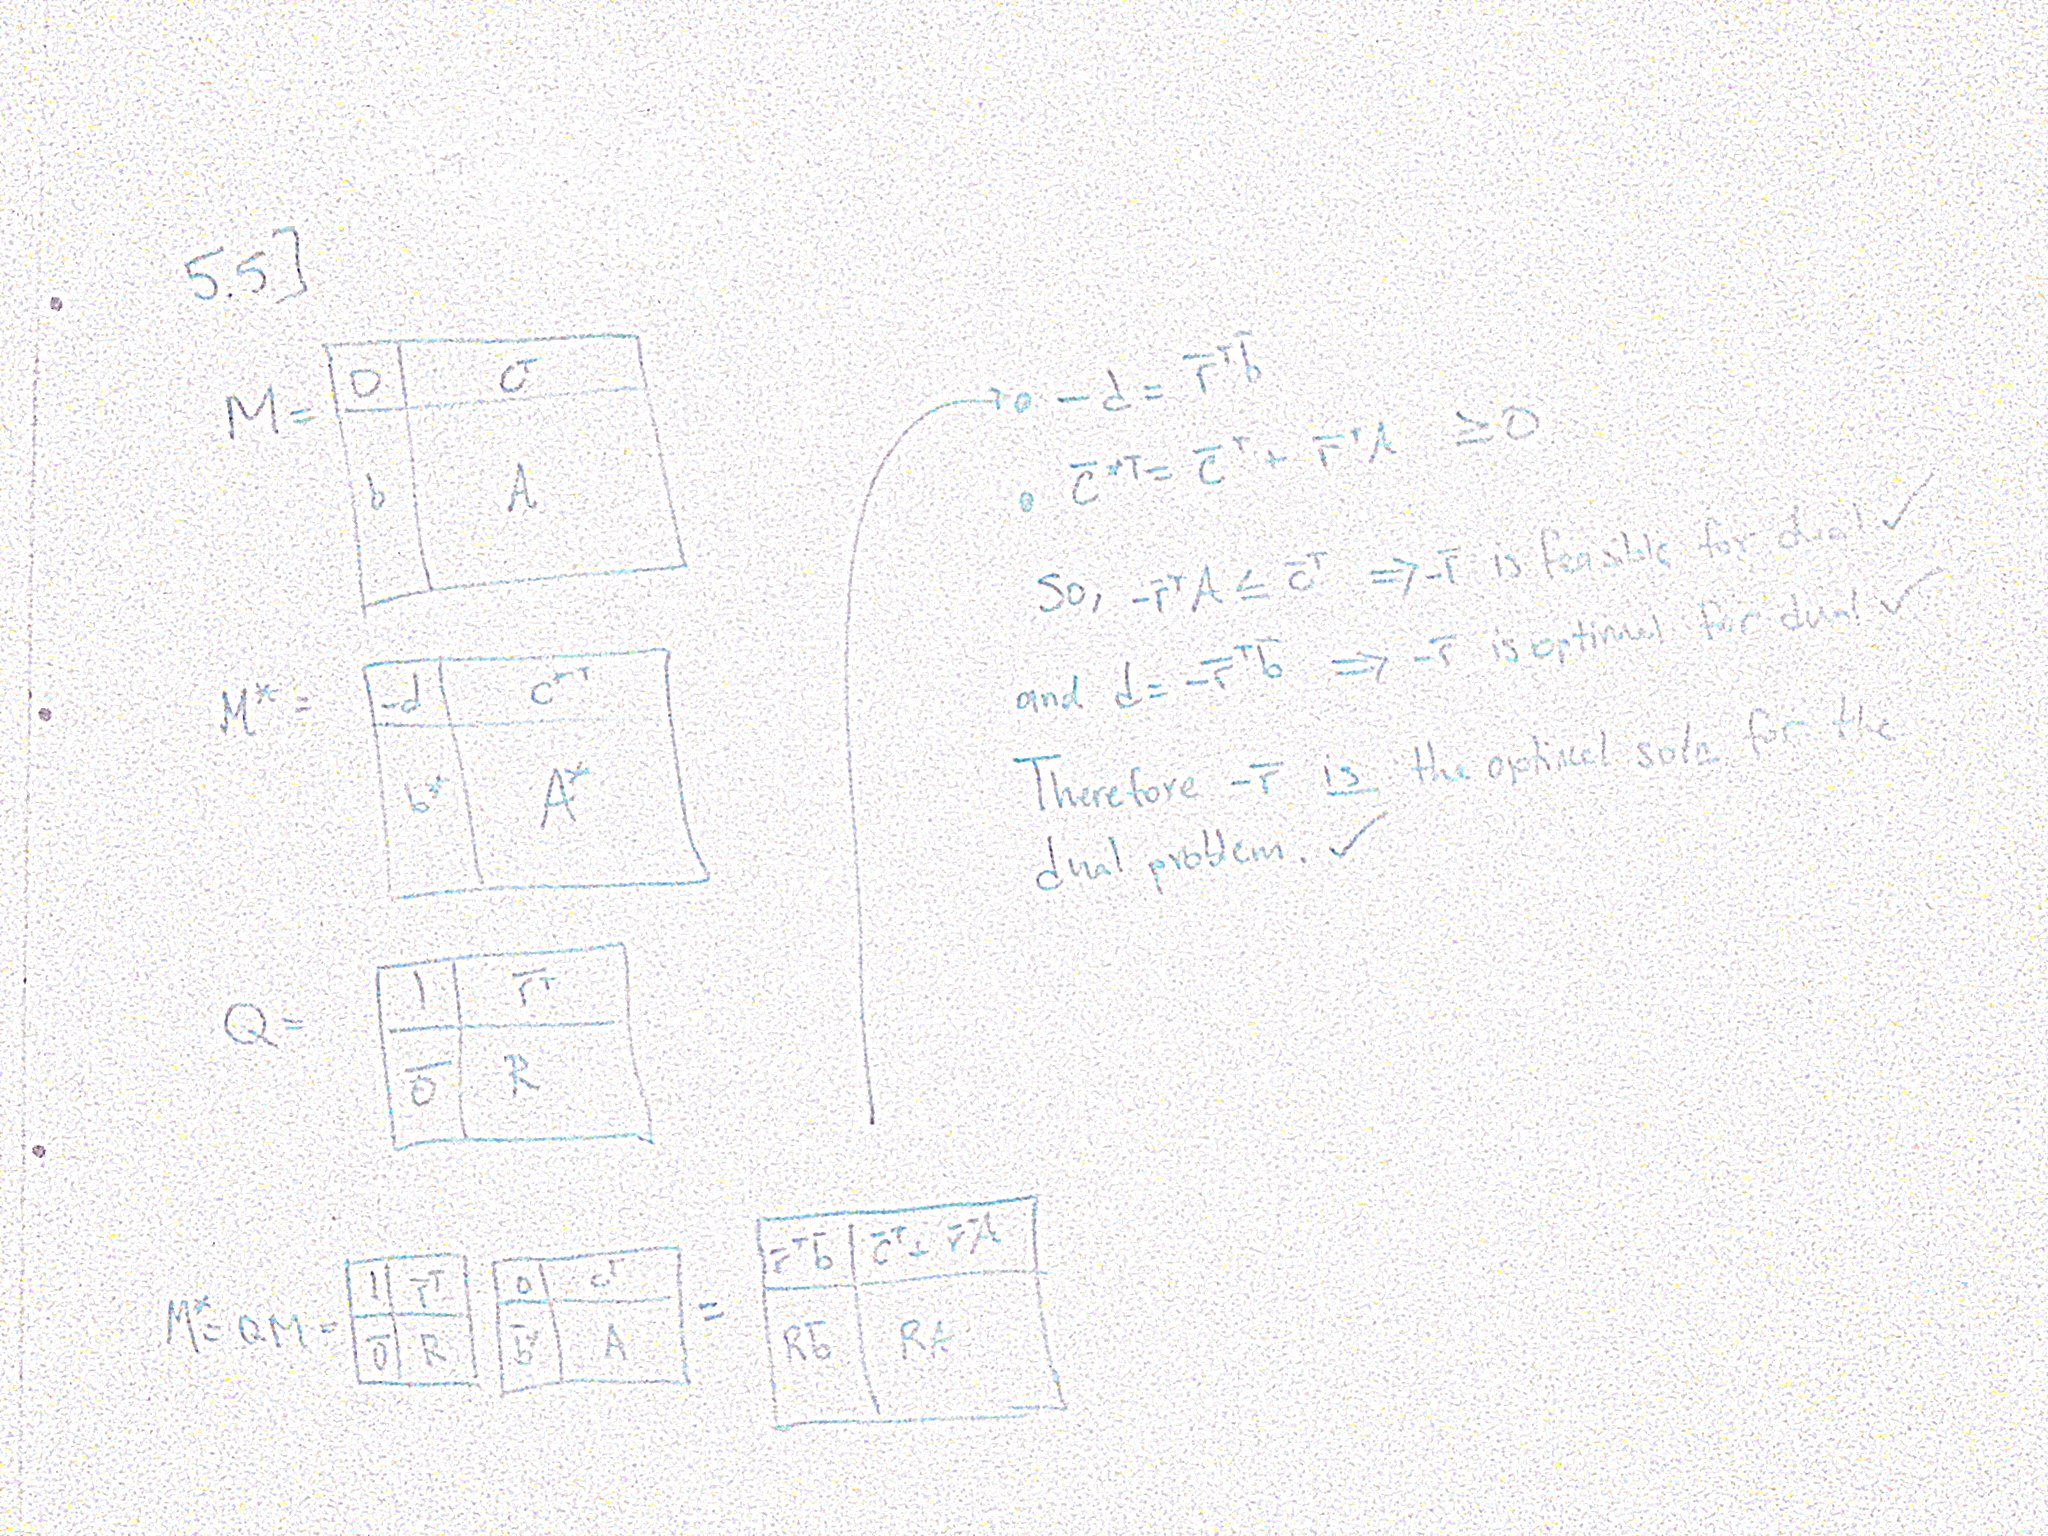 5.5]
M =
0 | c̄ᵀ
b | A
M* =
-d | c*ᵀ
b* | A*
Q =
1 | r̄ᵀ
0̄ | R
M* = QM =
1 | r̄ᵀ
0̄ | R
0 | cᵀ
b̄ | A
=
r̄ᵀb̄ | c̄ᵀ + r̄ᵀA
Rb̄ | RA
-d = r̄ᵀb̄
c̄*ᵀ = c̄ᵀ + r̄ᵀA ≥ 0
So, -r̄ᵀA ≤ c̄ᵀ ⇒ -r̄ is feasible for dual ✓
and d = -r̄ᵀb̄ ⇒ -r̄ is optimal for dual ✓
Therefore -r̄ is the optimal soln for the
dual problem. ✓